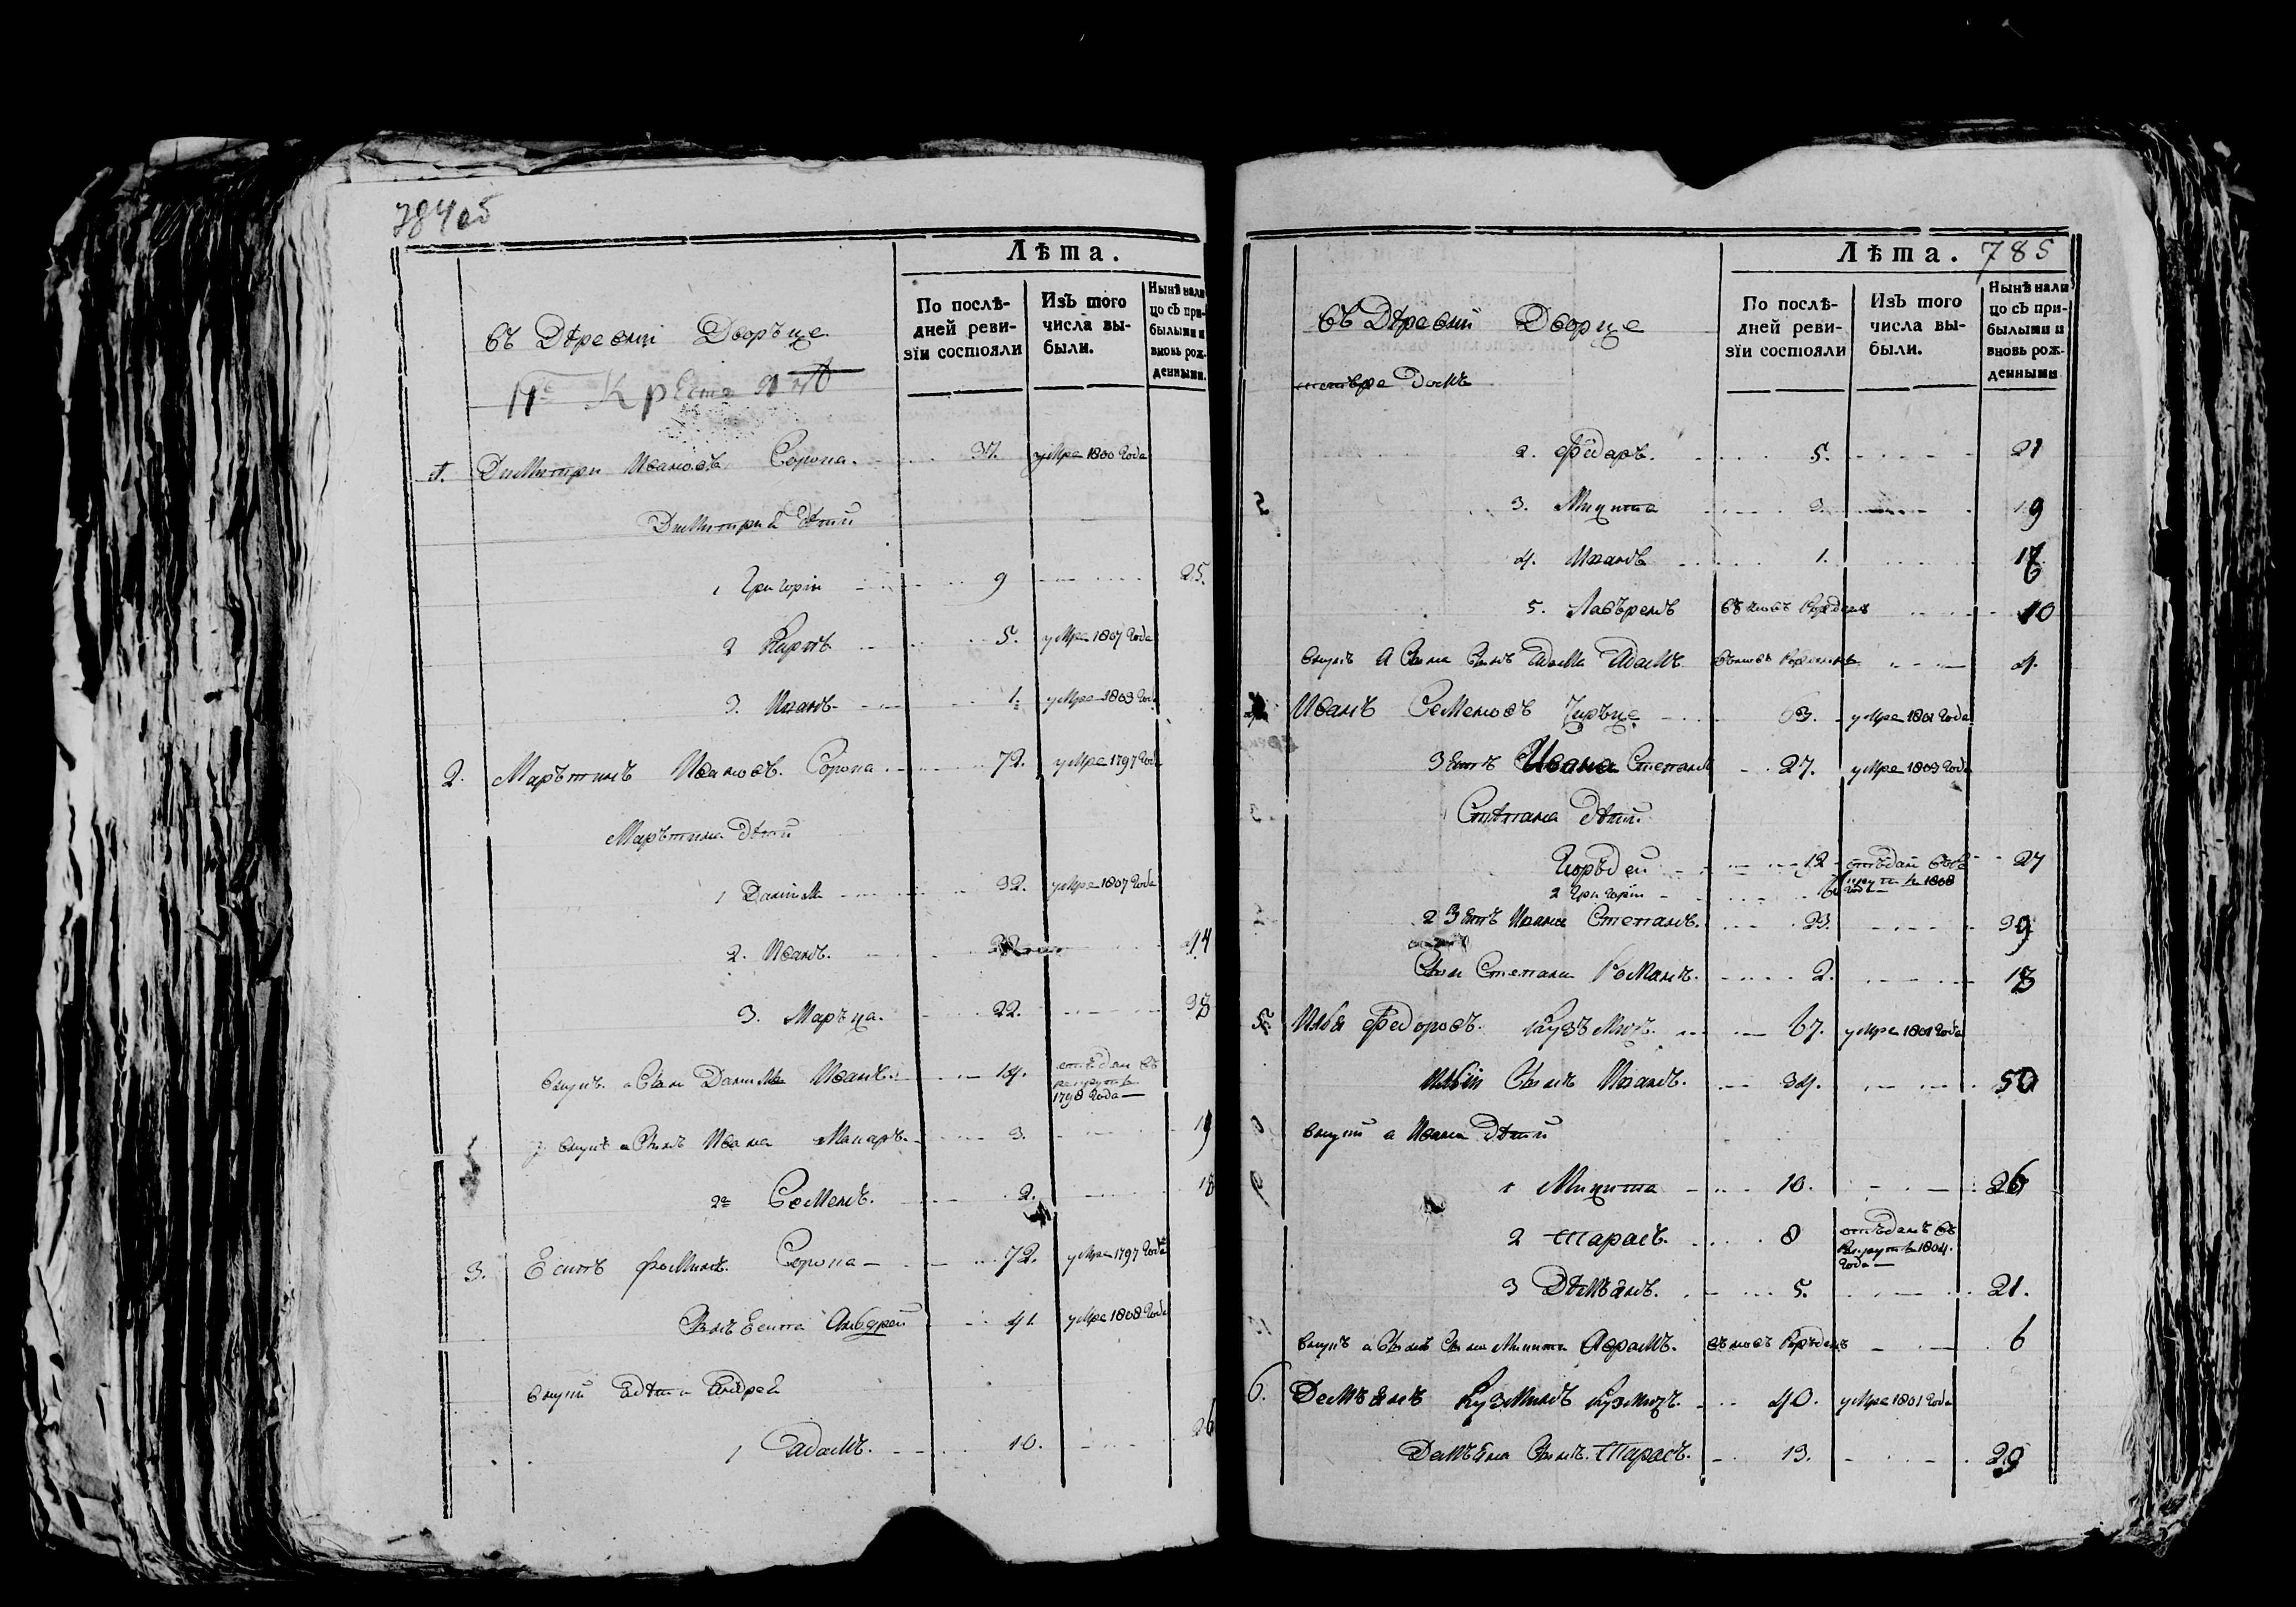 784 об
Лѣта.
По послѣ-
дней реви-
зїи состояли
Изъ того
числа вы-
были.
Нынѣ нали
цо съ при-
былыми и
вновь рож-
денными.
въ Деревни Дворъце
1. Дмитри Ивановъ Сорока. 37. умре 1800 Года
Дмитрия дети
1 Григорïи 9 25.
2 Карпъ 5. умре 1807 Года
3. Иванъ 1. умре 1803 Года
2. Марътинъ Ивановъ. Сорока 72. умре 1797 Года
Марътина дети
1 Данила 32. умре 1807 Года
2. Иванъ. 44
3. Маръка. 22. 38
внукъ Данилы Иванъ. 14. отъдан въ
рекруты
1798 Года
внукъ Ивана Макаръ. 3. 19
2й Семенъ. 2. 18
3. Есипъ Фоминъ. Сорока 72. умре 1797 Года
Сынъ Есипа Андрей 41 умре 1808 Года
внуки Андрея
1 Адамъ. 10. 26
Лѣта. 785
По послѣ-
дней реви-
зїи состояли
Изъ того
числа вы-
были.
Нынѣ нали
цо съ при-
былыми и
вновь рож-
денными
въ Деревни Дворце
2. Фїдаръ. 5. 21
3. Микита 3. 19
4. Иванъ 1.
5. Лавърень 10
внукъ Адамъ 4.
Иванъ Семеновъ 63. умре 1801 Года
Зеть Ивана Степанъ 27. умре 1803 Года
Степана дети
Горъдеи 12 отъдан въ 27
рекруты 1808
2 Григорїи
2 Зеть Ивана Степанъ. 23. 39
Сын Степана Романъ. 2. 18
5 Илья Федоровъ. Кузъмичъ. 67. умре 1801 Года
Ильїи Сынъ Иванъ. 34. 50
внуки а Ивана дети
1 Микита 10. 26
2 Тарасъ. 8 отъданъ въ
Рекруты 1804.
Года
3 Демъянъ. 5. 21.
внукъ Микиты Аврамъ. 6
6. Демъянъ Кузминъ Кузмичъ. 40. умре 1801 Года
Демъяна Сынъ. Тарасъ. 13. 29